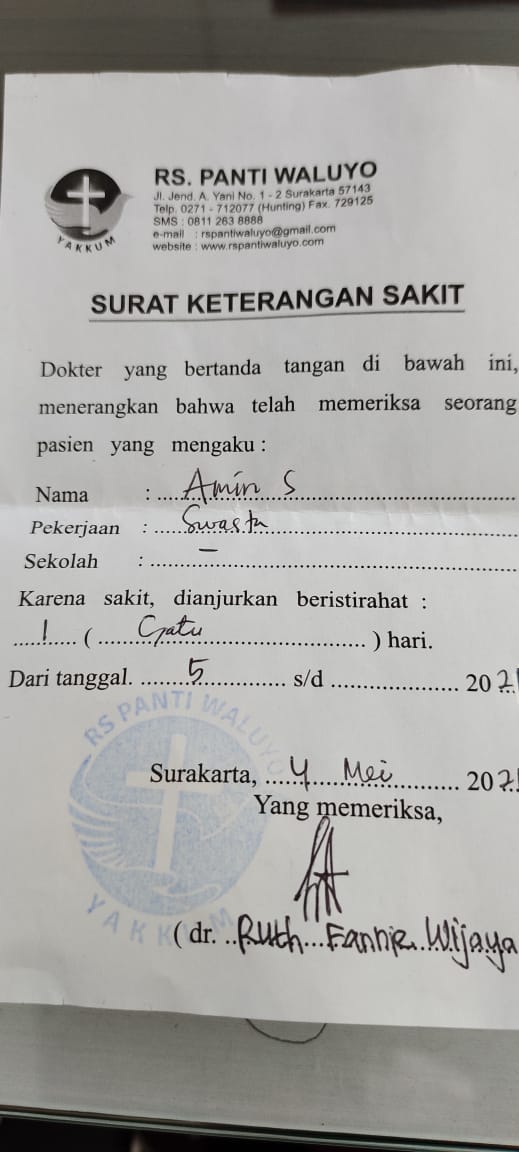 RS. PANTI WALUYO
Jl. Jend. A. Yani No. 1 - 2 Surakarta 57143
Telp. 0271 - 712077 (Hunting) Fax. 729125
SMS : 0811 263 8888
e-mail : rspantiwaluyo@gmail.com
website : www.rspantiwaluyo.com
YAKKUM
SURAT KETERANGAN SAKIT
Dokter yang bertanda tangan di bawah ini,
menerangkan bahwa telah memeriksa seorang
pasien yang mengaku :
Nama : Amin S
Pekerjaan : Swasta
Sekolah : –
Karena sakit, dianjurkan beristirahat :
1 ( Satu ) hari.
Dari tanggal. 5 s/d 2021
Surakarta, 4 Mei 2021
Yang memeriksa,
( dr. Ruth Fannie Wijaya
RS PANTI WALUYO
YAKKUM